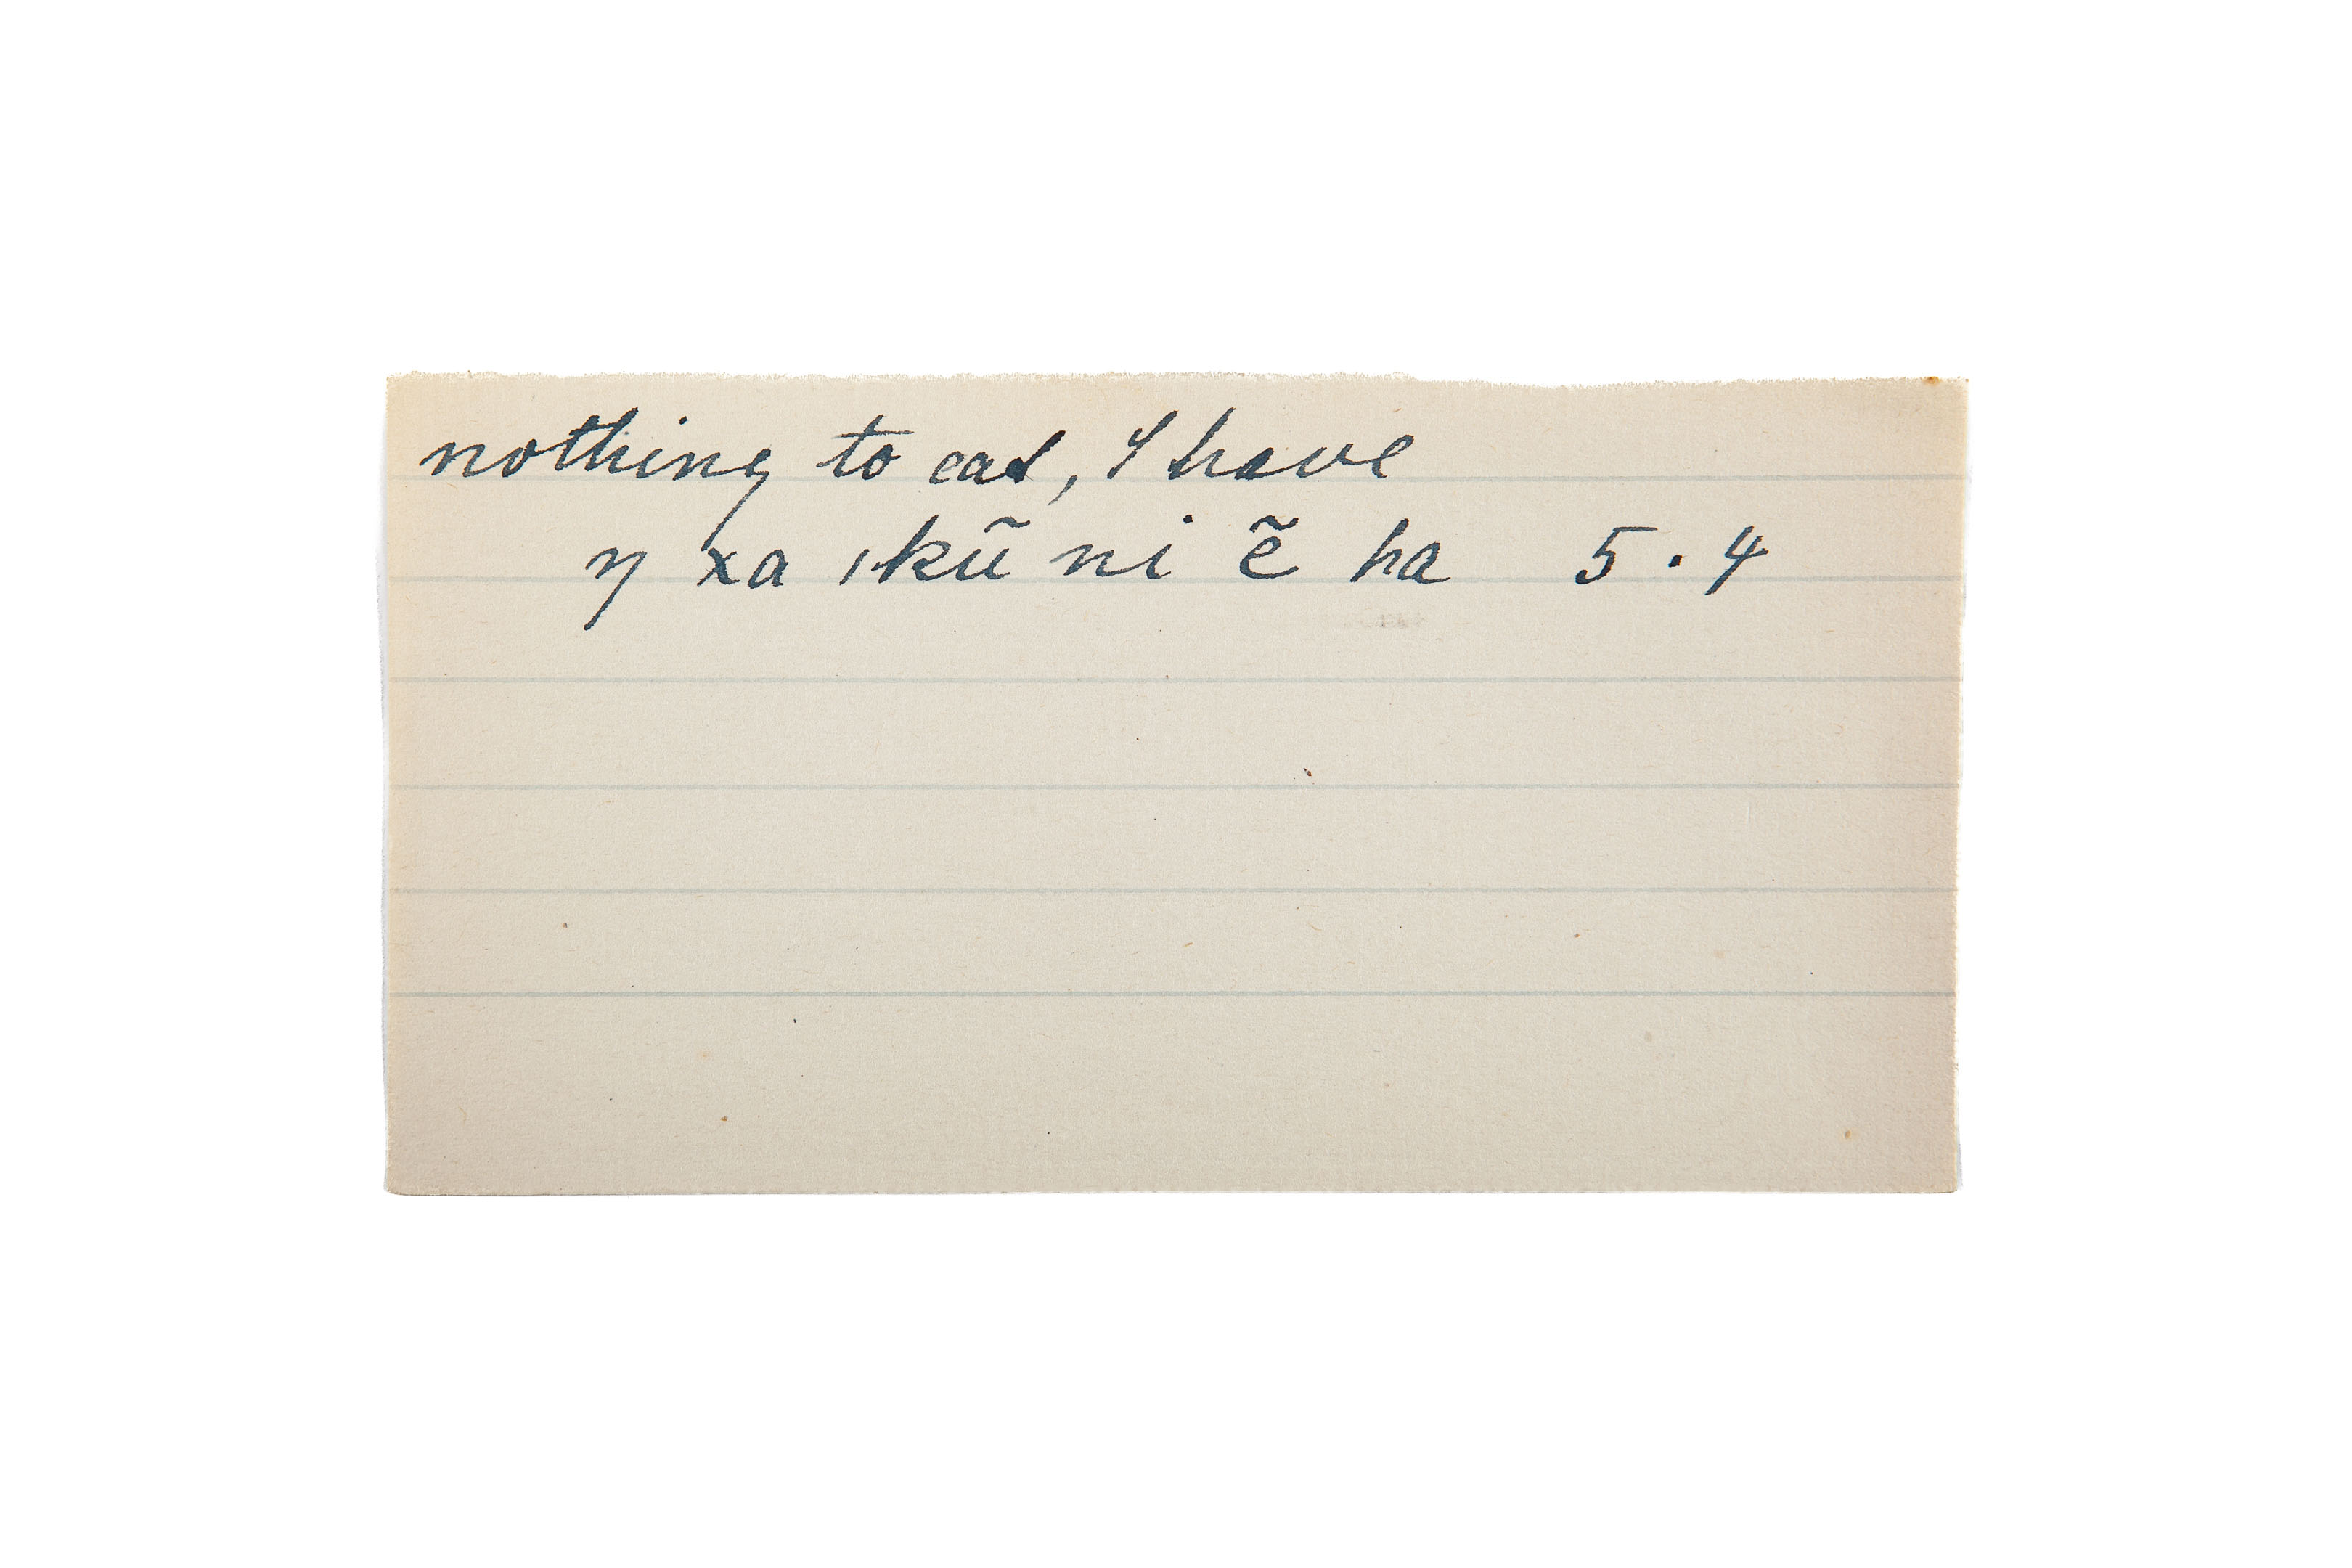 nothing to eat, I have
ŋ xa ıkū ni ẽ ha 5·4